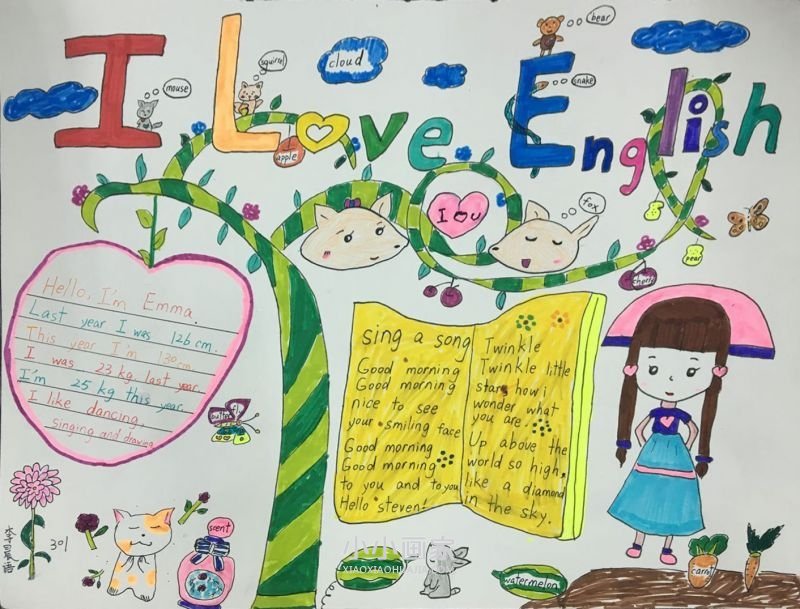 I Love English
mouse
squirrel
cloud
bear
snake
apple
I U
fox
pear
cherry
Hello, I'm Emma.
Last year I was 126 cm.
This year I'm 130cm.
I was 23 kg last year.
I'm 25 kg this year.
I like dancing,
singing and drawing
sing a song
Good morning
Good morning
nice to see
your smiling face
Good morning
Good morning
to you and to you
Hello steven!
Twinkle
Twinkle little
stars how i
wonder what
you are.
Up above the
world so high,
like a diamond
in the sky.
scent
301
watermelon
carrot
小小画家
XIAOXIAOHUAJIA